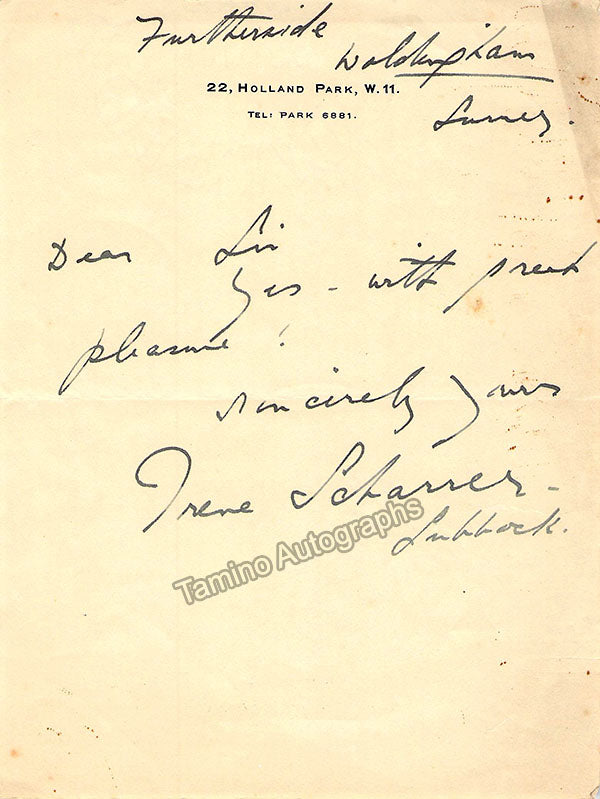 Furtherside
Woldingham
22, HOLLAND PARK, W. 11.
TEL: PARK 6881.
Surrey.
Dear Sir
Yes - with great
pleasure!
Sincerely yours
Irene Scharrer -
Lubbock.
Tamino Autographs